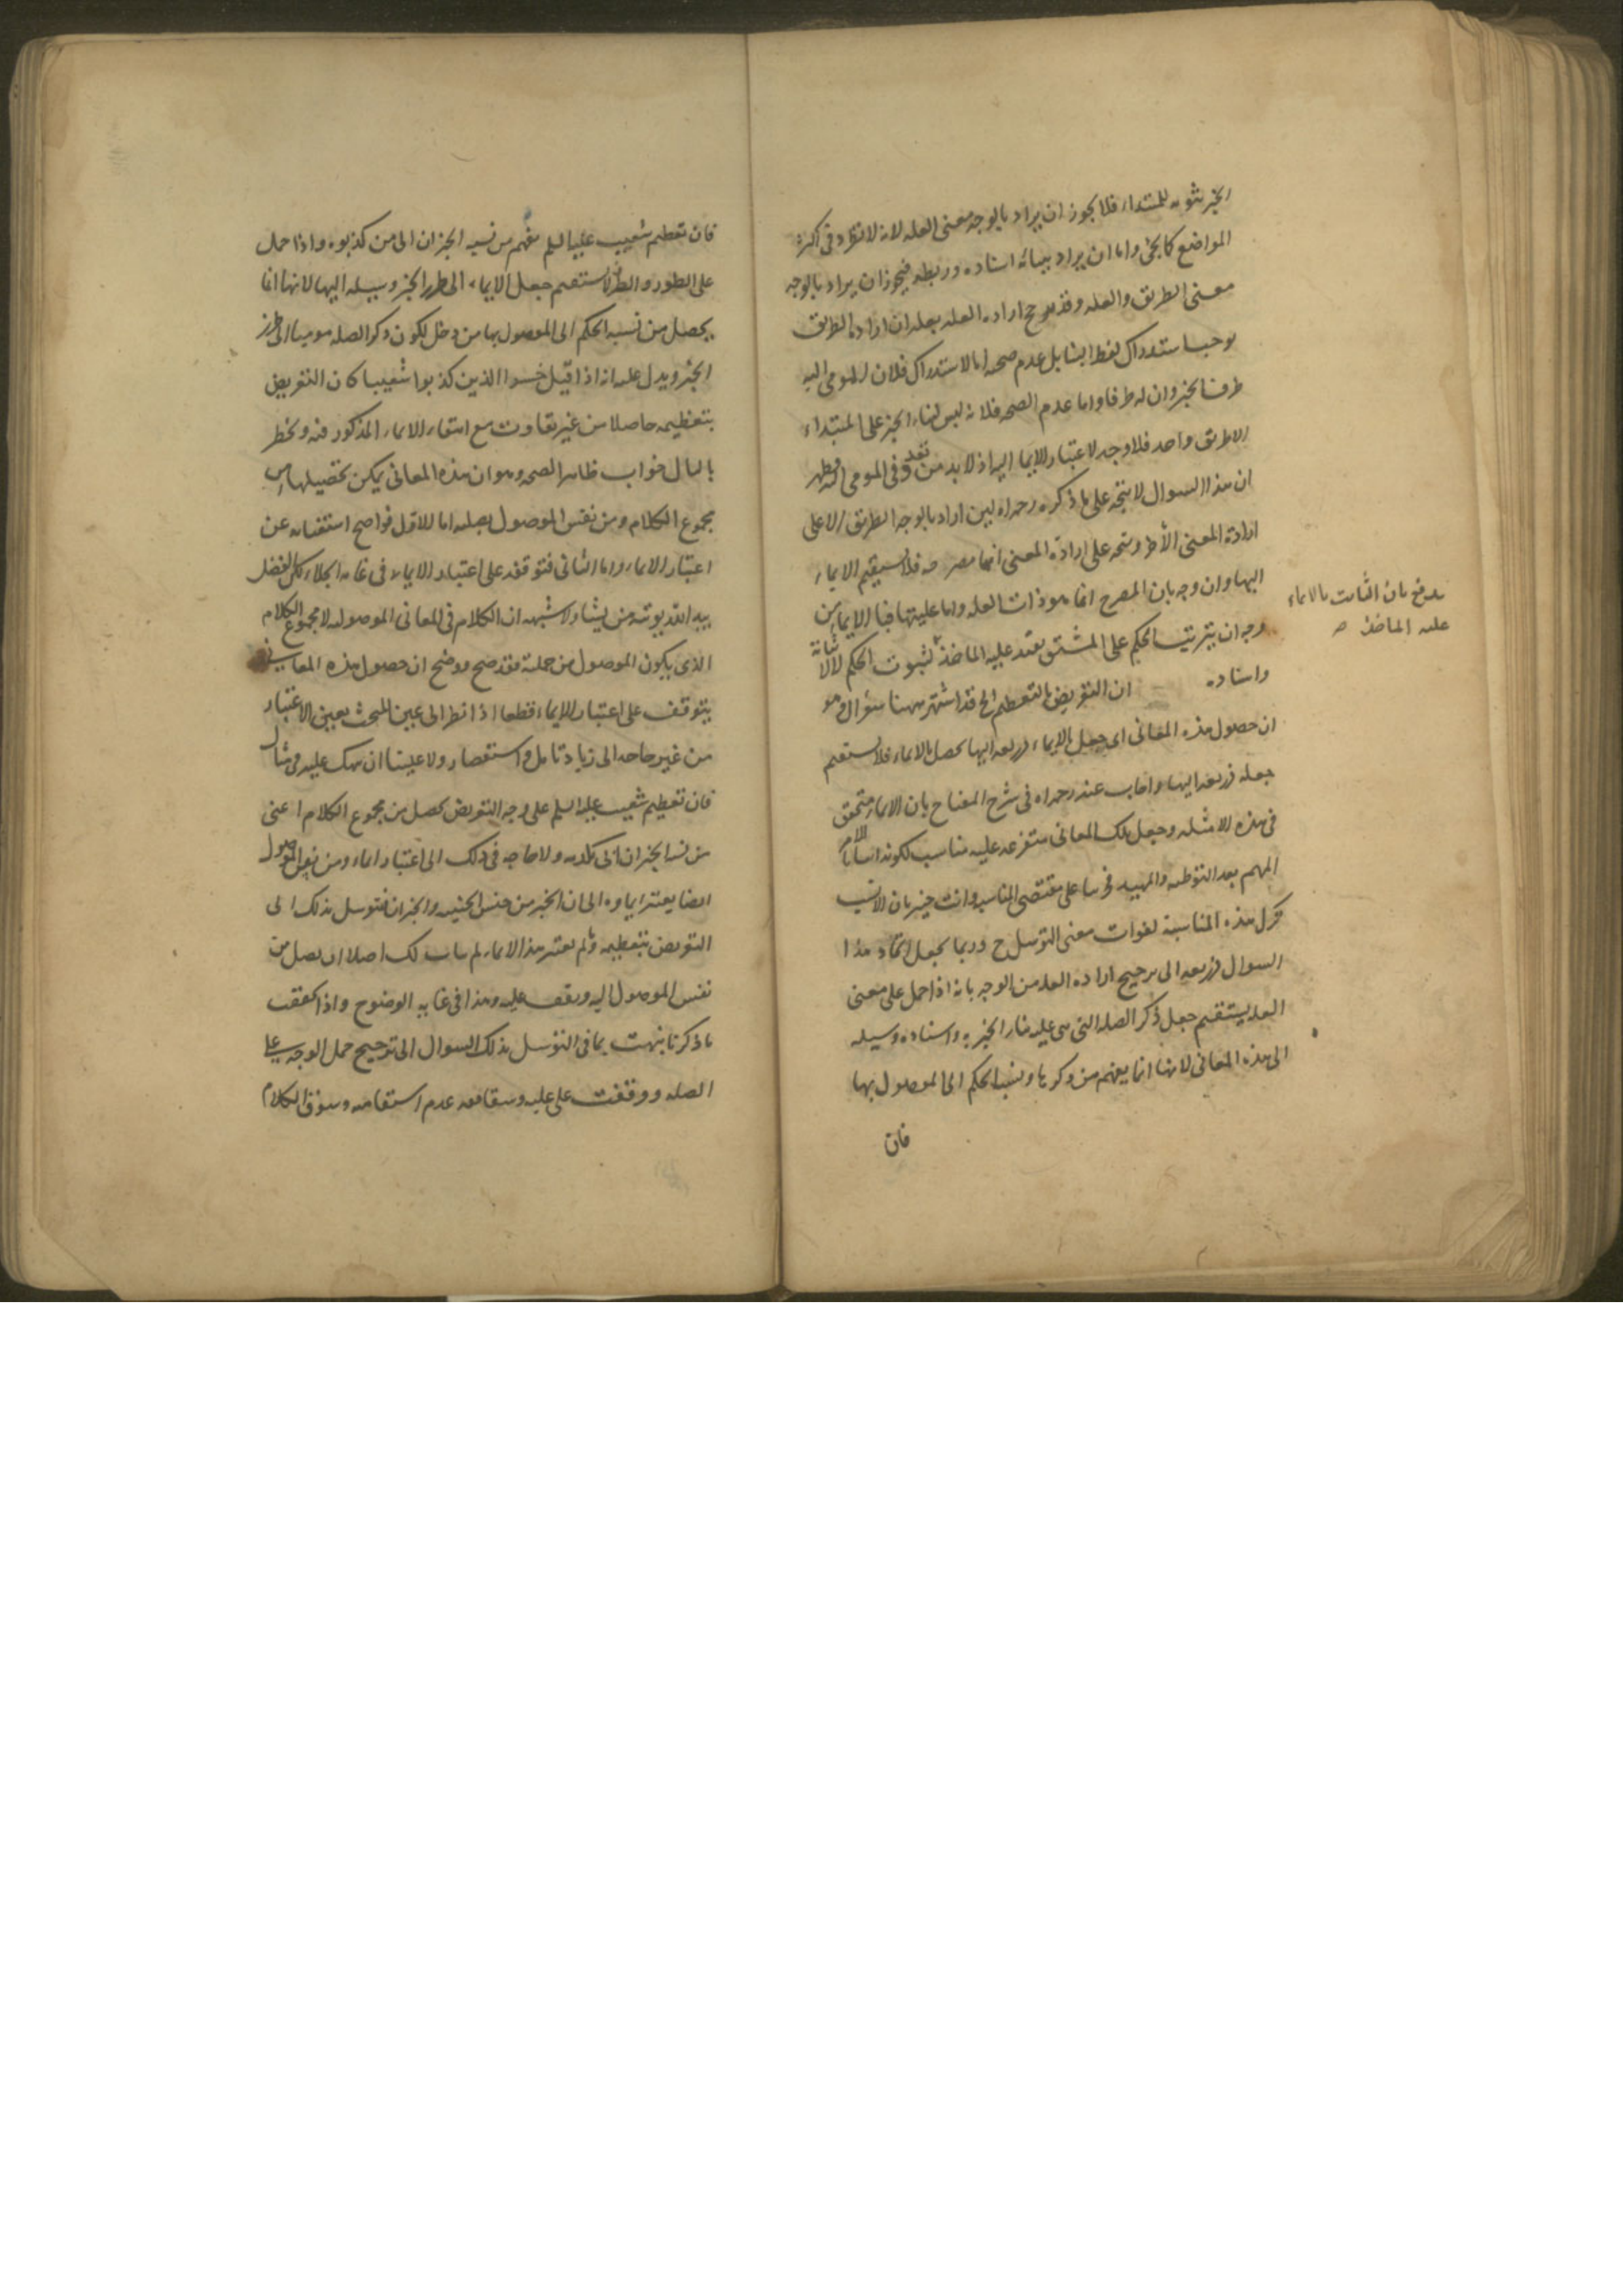 الخبر ثبوته للمبتداء فلا يجوز ان يراد بالوجه معنى العله لانه لا تطرد فى اكثر
المواضع كما يجئ واما ان يراد ببنائه اسناده وربطه فيجوز ان يراد بالوجه
معنى الطريق والعله وقد يرجح اراده العله بعله ان اراده الطريق
يوجب استدراك لفظ البنا بل عدم صحه اما الاستدراك فلان المومى اليه
طرف الخبر وان له طرقا واما عدم الصحه فلانه ليس لبناء الخبر على المبتداء
الا طريق واحد فلا وجه لاعتبار الايما اليه اذ لا بد من تعدد فى المومى اليه فظهر
ان هذا السوال لا يتجه على ما ذكره رحمه اله لمن اراد بالوجه الطريق الا على
ارادة المعنى الأظهر ويتجه على ارادة المعنى فلا يستقيم الايماء
اليها وان وجه بان المصرح انما هو ذات العله واما عليتها فبا الايماء من
وجه ان بترتيب الحكم على المشتق يفيد عليه الماخذ لثبوت الحكم لا لاثباته
واسناده ان التعريض بالتعظيم الخ قد اشتهر ههنا سؤال وهو
ان حصول هذه المعانى اى جعل بالايماء ذريعه اليها يحصل بالايماء فلا يستقيم
جعله ذريعه اليها واجاب عنه رحمه اله فى شرح المفتاح بان الايماء متحقق
فى هذه الامثله وجعل تلك المعانى متفرعه عليه مناسب لكونه اساسا للامر
المهم بعد التوطئه والتمهيد على مقتضى المناسبه وانت خبير بان الانسب
ترك هذه المناسبة لفوات معنى التوسل ح وربما يجعل اتجاه هذا
السوال ذريعه الى ترجيح اراده العله من الوجه بانه اذا حمل على معنى
العله يستقيم جعل ذكر الصله التى هى عليه بناء الخبر به واسناده وسيله
الى هذه المعانى لانها انما يفهم من ذكرها ونسبه الحكم الى الموصول بها
فان
يدفع بان الثابت بالايماء
عليه الماخذ ص
فان تعظيم شعيب عليه السلم يفهم من نسبه الخبر ان الى من كذبوه واذا حمل
على الطور والطرز لا يستقيم جعل الايماء الى طرز الخبر وسيله اليها لانها انما
يحصل من نسبه الحكم الى الموصول بها من دخل لكون ذكر الصله موميا الى طرز
الخبر ويدل عليه انه اذا قيل خسر الذين كذبوا شعيبا كان التعريض
بتعظيمه حاصلا من غير تفاوت مع انتفاء الايماء المذكور فيه ويخطر
بالبال جواب ظاهر الصحه وهو ان هذه المعانى يمكن تحصيلها من
مجموع الكلام ومن نفس الموصول بصلته اما الاول فواضح استغنائه عن
اعتبار الايماء واما الثانى فتوقفه على اعتبار الايماء فى غايه الجلاء لكن الفضل
بيد الله يوتيه من يشاء ولا شبهه ان الكلام فى المعانى الموصوليه لا مجموع الكلام
الذى يكون الموصول من جملته فقد صح ووضح ان حصول هذه المعانى
يتوقف على اعتبار الايماء قطعا اذا نظر الى عين المبحث بعين الاعتبار
من غير حاجه الى زياد تامل واستقصاء ولا علينا ان نهك عليه فى مثال
فان تعظيم شعيب عليه السلم على وجه التعريض يحصل من مجموع الكلام اعنى
من نسبه الخبر ان الى كلامه ولا حاجه فى ذلك الى اعتبار ايماء ومن نفس الموصول
ايضا يعتبر ايماوه الى ان الخبر من جنس الخيبه والخسران فتوسل بذلك الى
التعريض بتعظيمه ولم يعتبر هذا الايماء لم يتات لك اصلا ان يصل من
نفس الموصول اليه ويقف عليه وهذا فى غايه الوضوح واذا تحققت
ما ذكرنا بنهت بما فى التوسل بذلك السوال الى ترجيح حمل الوجه على
العله ووقفت على عليه عدم استقامه وسوق الكلام